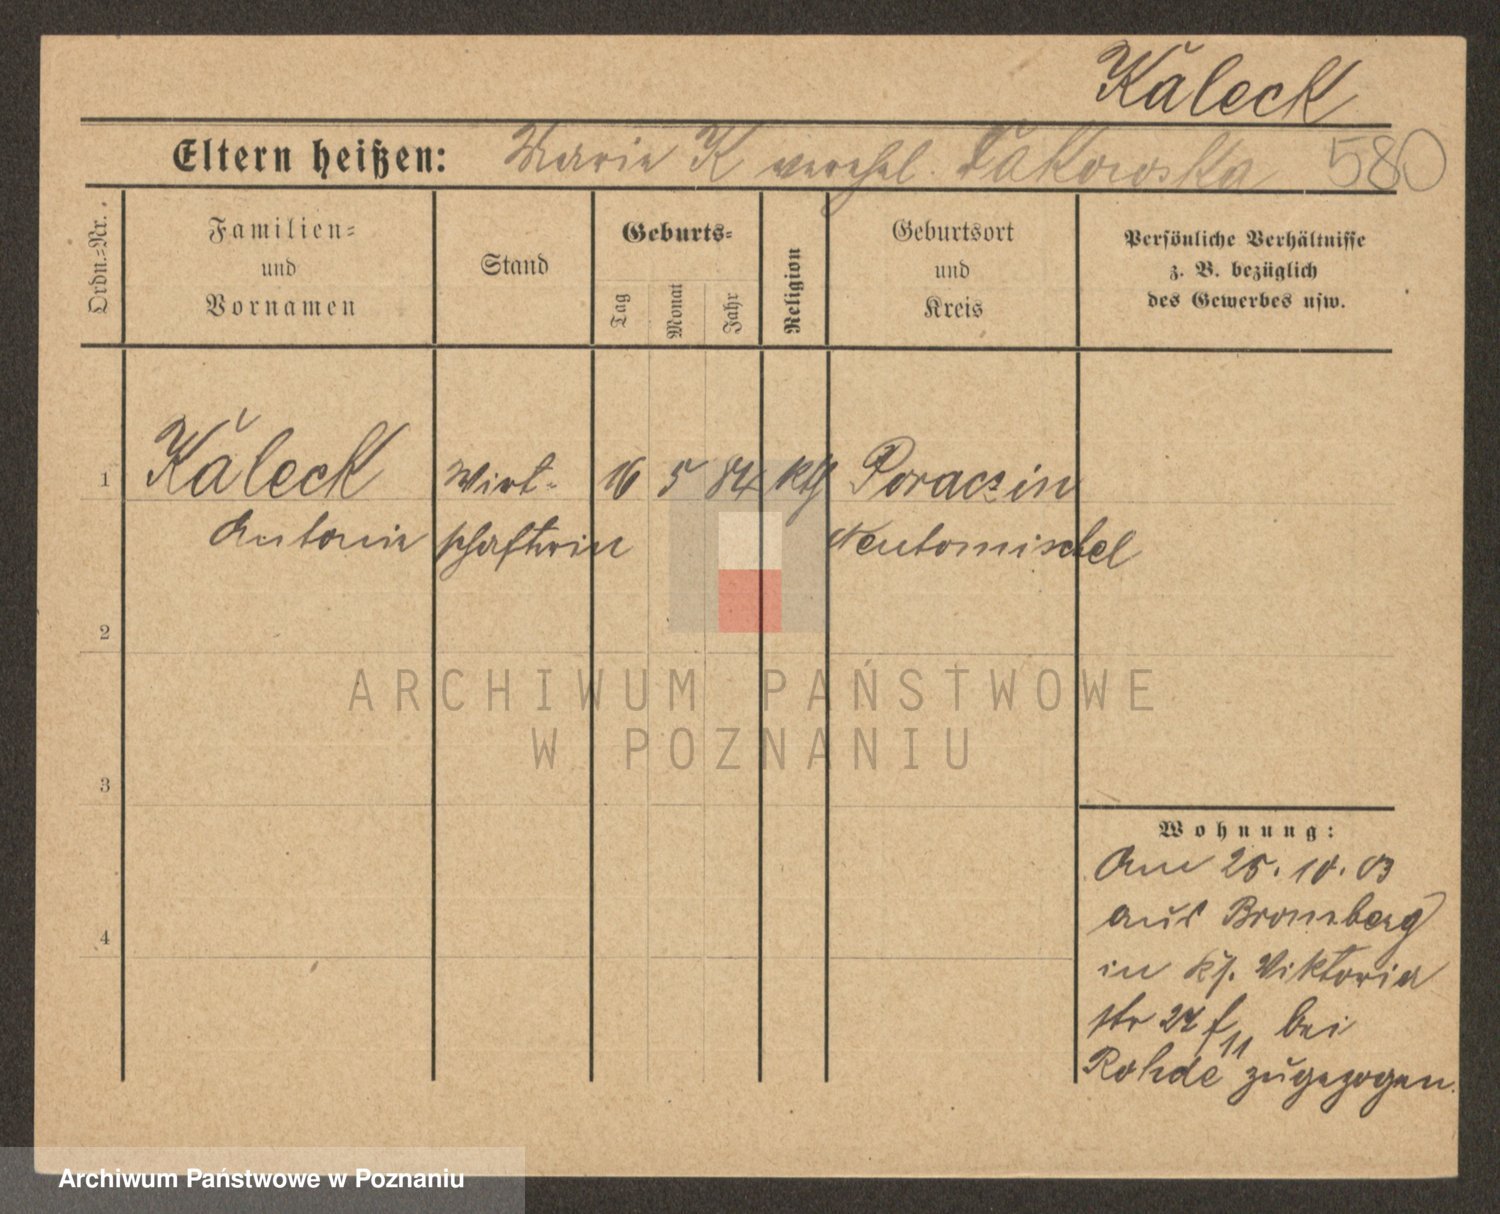 Kaleck
Eltern heißen: Marie K verehel. Takowska 580
Ordn.-Nr.
Familien-
und
Vornamen
Stand
Geburts-
Tag
Monat
Jahr
Religion
Geburtsort
und
Kreis
Persönliche Verhältnisse
z. B. bezüglich
des Gewerbes usw.
1 Kaleck Wirt- 16 5 84 kth Poraczin
Antonie schafterin Neutomischel
2
3
4
ARCHIWUM PAŃSTWOWE
W POZNANIU
Wohnung:
Am 25.10.03
aus Bromberg
in Viktoria
str 27 bei
Rohde zugezogen.
Archiwum Państwowe w Poznaniu